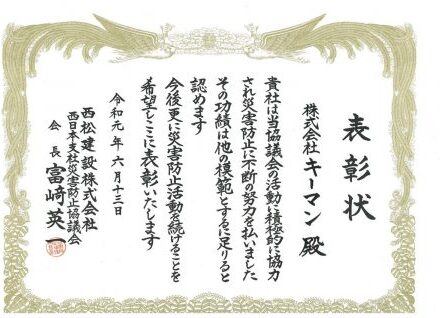 表彰状
株式会社 キーマン 殿
貴社は当協議会の活動に積極的に協力
され災害防止に不断の努力を払いました
その功績は他の模範とするに足りると
認めます
今後更に災害防止活動を続けることを
希望しここに表彰いたします
令和元年六月十三日
西松建設株式会社
西日本支社災害防止協議会
会長 富﨑英一